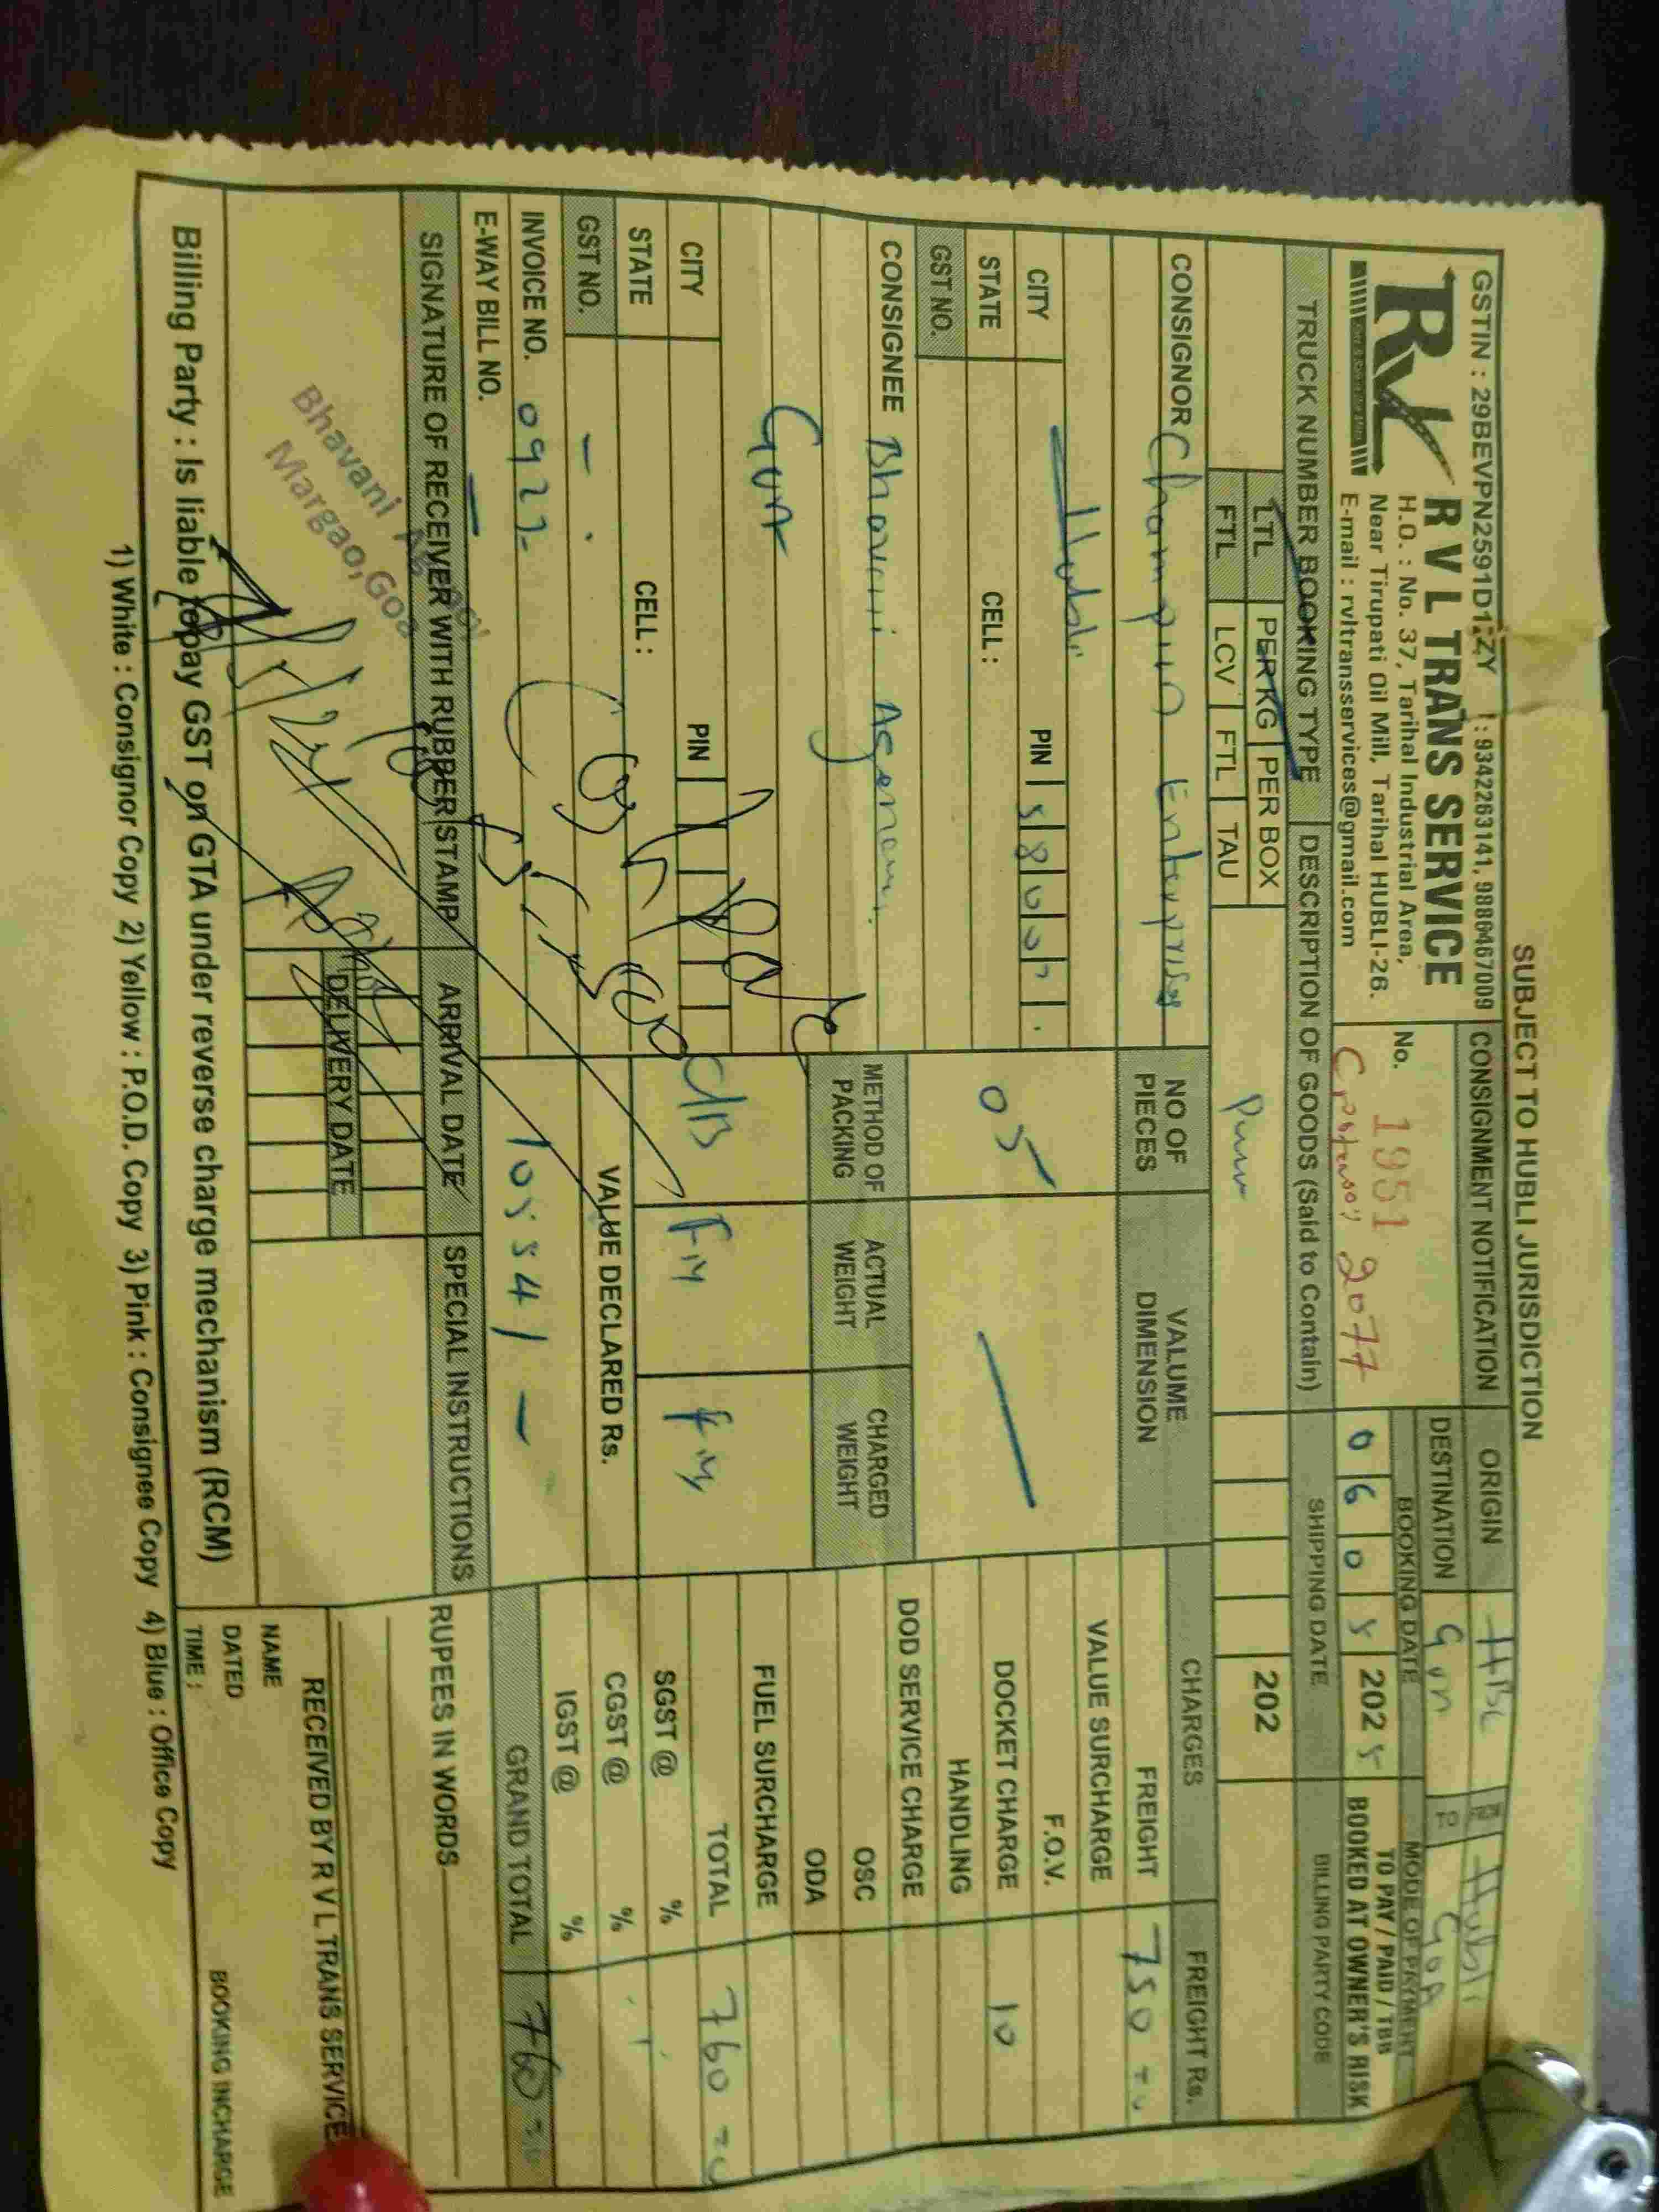 SUBJECT TO HUBLI JURISDICTION
GSTIN : 29BEVPN2591D1ZY : 9342263141, 9886467009
R V L TRANS SERVICE
H.O. : No. 37, Tarihal Industrial Area,
Near Tirupati Oil Mill, Tarihal HUBLI-26.
E-mail : rvltransservices@gmail.com
CONSIGNMENT NOTIFICATION
No. 1951
2077
ORIGIN HBL FROM Hubli
DESTINATION Goa TO GOA
BOOKING DATE MODE OF PAYMENT
0 6 0 5 202 5 TO PAY / PAID / TBB
BOOKED AT OWNER'S RISK
TRUCK NUMBER BOOKING TYPE DESCRIPTION OF GOODS (Said to Contain) SHIPPING DATE BILLING PARTY CODE
LTL PER KG PER BOX
FTL LCV FTL TAU
202
CONSIGNOR Champion Enterprises
Hubli
CITY PIN
STATE CELL :
GST NO.
CONSIGNEE Bhavani Agency
Goa
CITY PIN
STATE CELL :
GST NO. -
INVOICE NO. 0922
E-WAY BILL NO. —
NO OF PIECES VALUME DIMENSION
05
METHOD OF PACKING ACTUAL WEIGHT CHARGED WEIGHT
C/B Fix Fix
VALUE DECLARED Rs.
105541 —
CHARGES FREIGHT Rs.
FREIGHT 750
VALUE SURCHARGE
F.O.V.
DOCKET CHARGE 10
HANDLING
DOD SERVICE CHARGE
OSC
ODA
FUEL SURCHARGE
TOTAL 760
SGST @ %
CGST @ %
IGST @ %
GRAND TOTAL 760
SIGNATURE OF RECEIVER WITH RUBBER STAMP ARRIVAL DATE SPECIAL INSTRUCTIONS
DELIVERY DATE
Bhavani
Margao, Goa
RUPEES IN WORDS
RECEIVED BY R V L TRANS SERVICE
NAME
DATED
TIME : BOOKING INCHARGE
Billing Party : Is liable topay GST on GTA under reverse charge mechanism (RCM)
1) White : Consignor Copy 2) Yellow : P.O.D. Copy 3) Pink : Consignee Copy 4) Blue : Office Copy